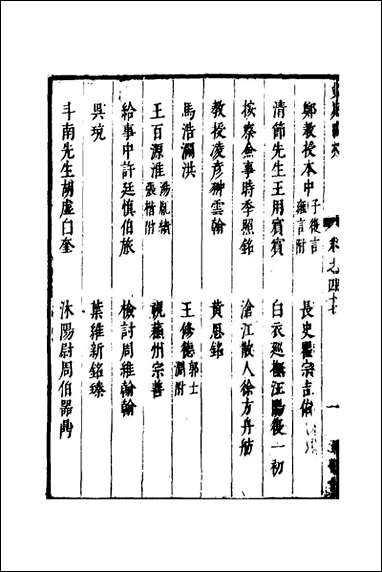 卷之四十七
鄭教授本中 子復言 雍言附 長史瞿宗吉佑
清節先生王用賓賓 白衣巡撫汪陽復一初
按察僉事時季照銘 滄江散人徐方舟舫
教授凌彥翀雲翰 黃思銘
馬浩瀾洪 王修德 郭士淵附
王百源淮 湯胤績 張楷附 祝蘄州宗善
給事中許廷慎伯旅 檢討周維翰翰
吳琬 葉維新銘臻
斗南先生胡虛白奎 沐陽尉周伯器鼎